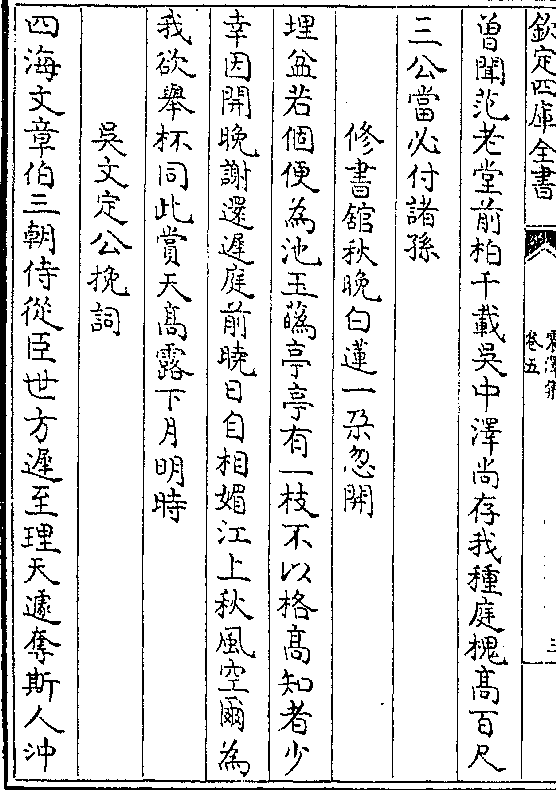 欽定四庫全書
卷五
三
曽聞范老堂前柏千載吳中澤尚存我種庭槐髙百尺
三公當必付諸孫
修書舘秋晚白蓮一朶忽開
埋盆若個便為池玉蘂亭亭有一枝不以格髙知者少
幸因開晚謝還遲庭前曉日自相媚江上秋風空爾為
我欲舉杯同此賞天髙露下月明時
吳文定公挽詞
四海文章伯三朝侍從臣世方遲至理天遽奪斯人沖